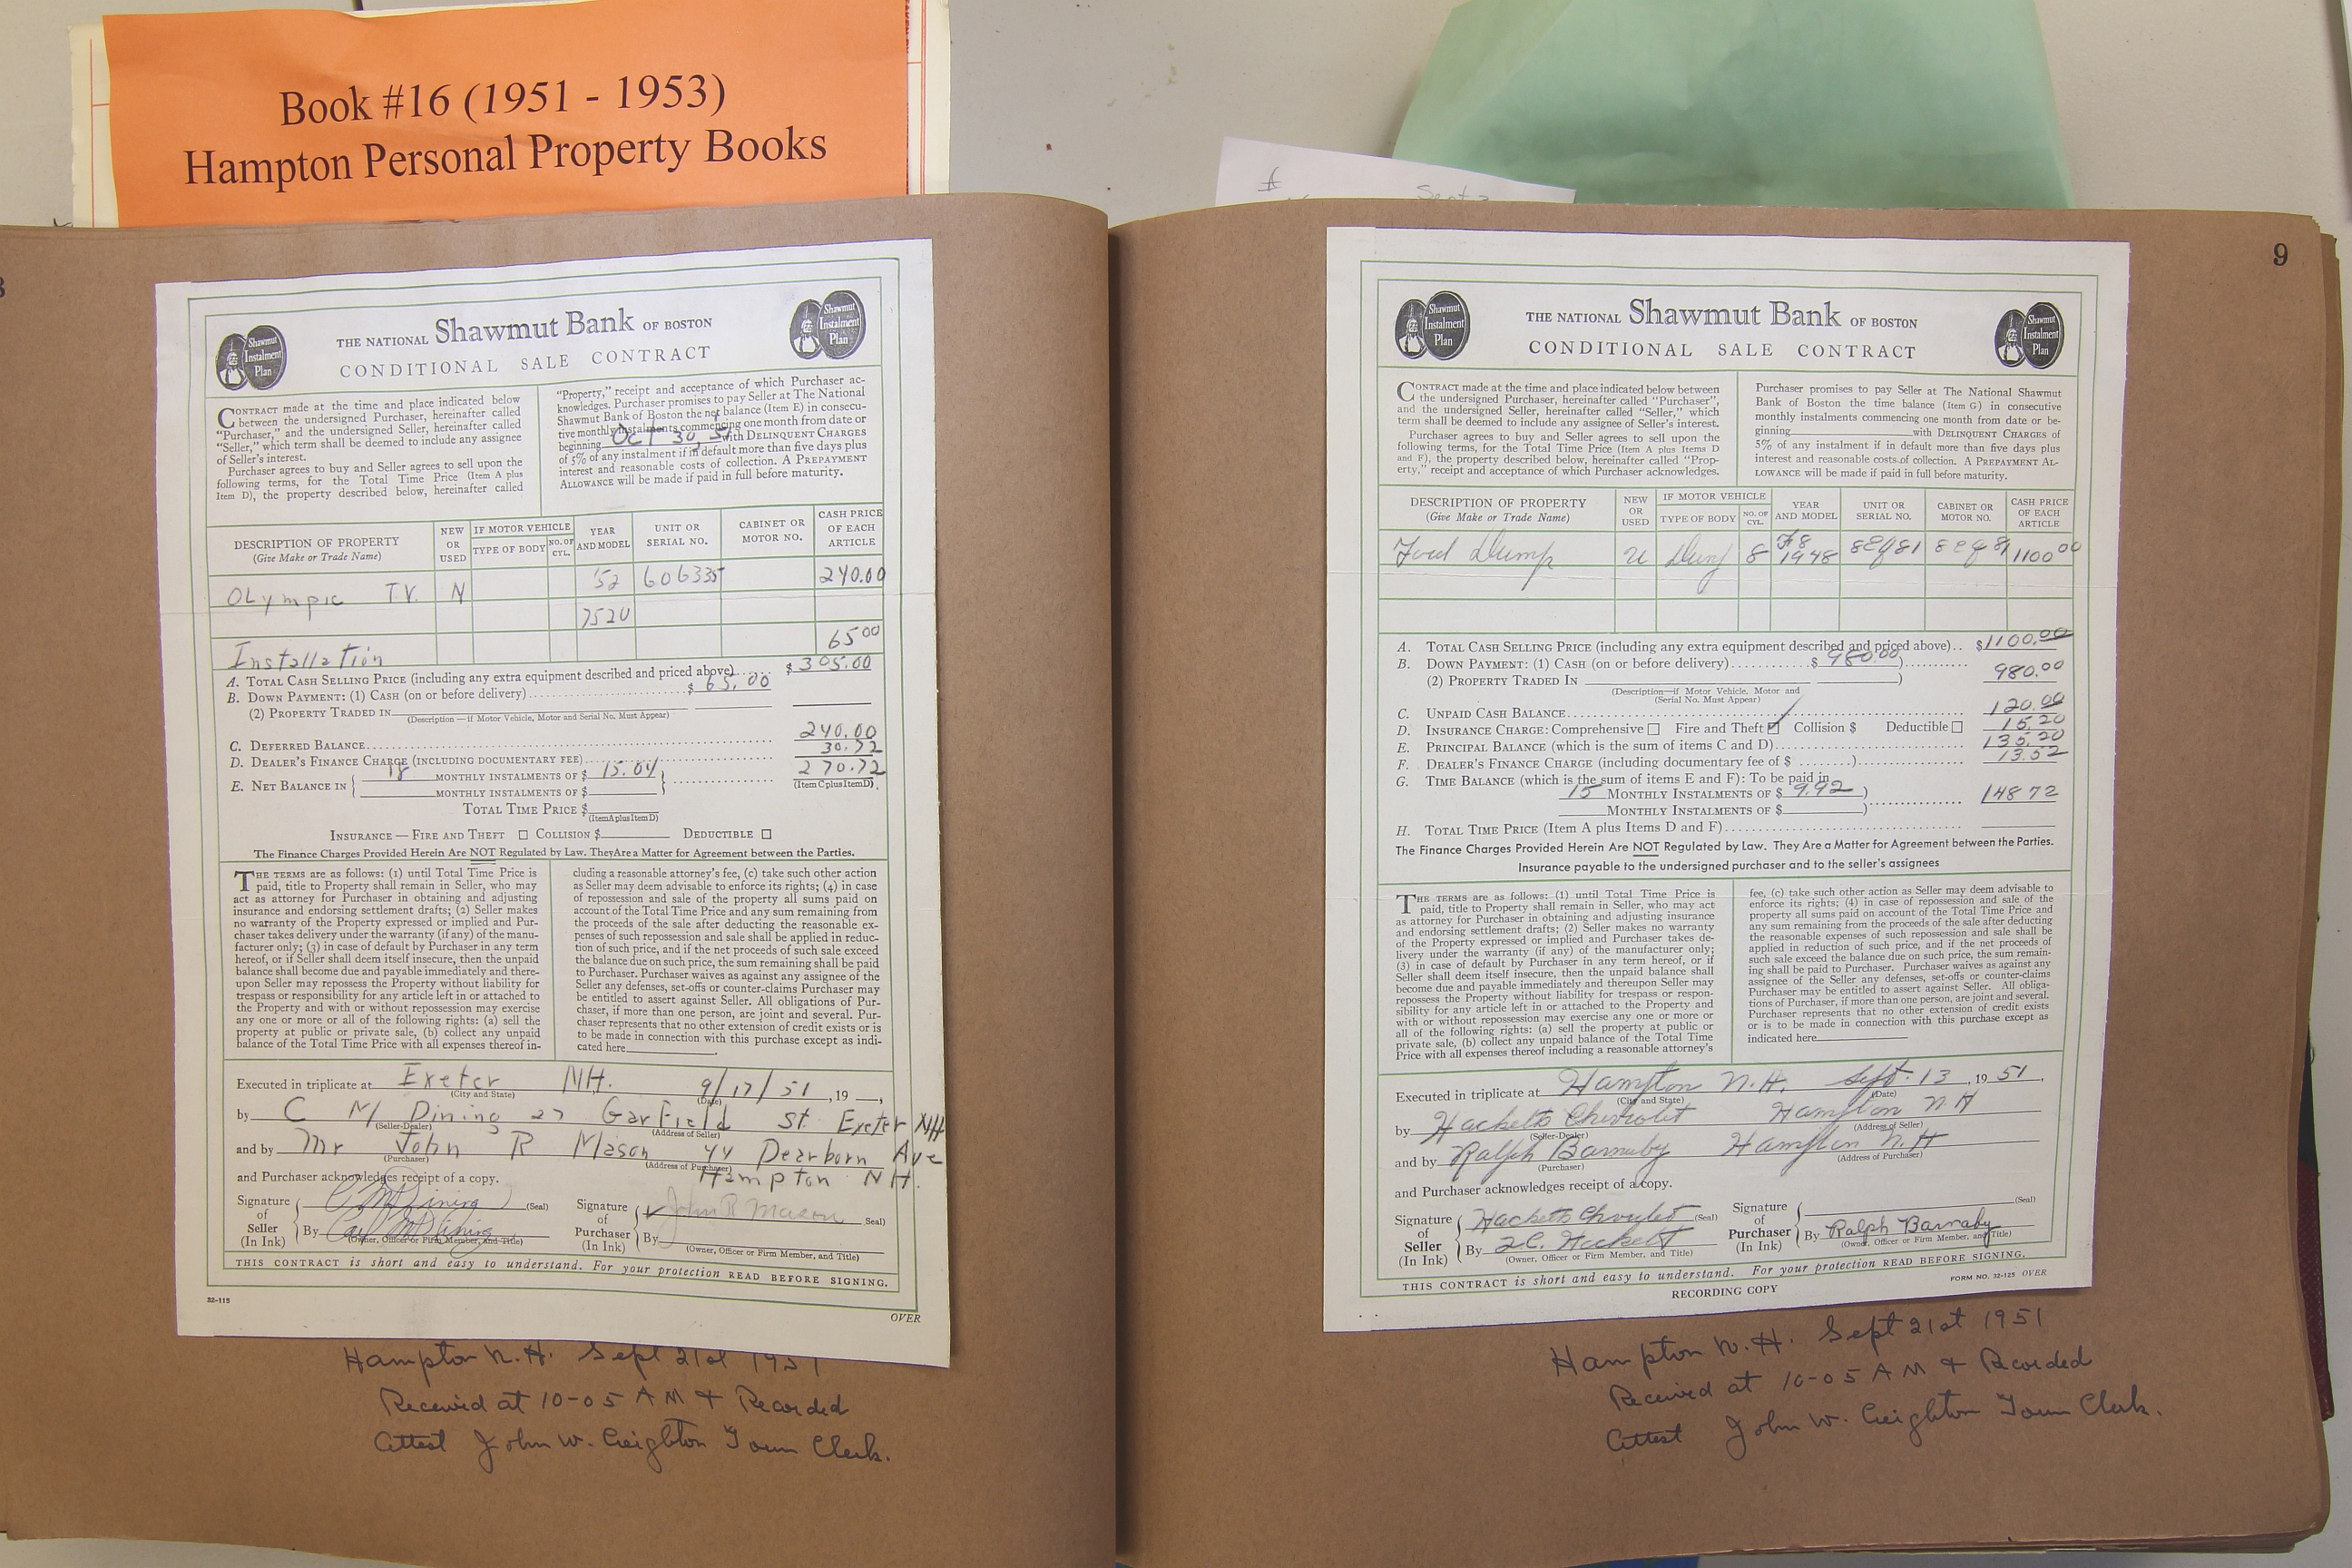 Book #16 (1951 - 1953)
Hampton Personal Property Books
Sept 2
9
Shawmut
Instalment
Plan
THE NATIONAL Shawmut Bank OF BOSTON
CONDITIONAL SALE CONTRACT
Shawmut
Instalment
Plan
CONTRACT made at the time and place indicated below
between the undersigned Purchaser, hereinafter called
"Purchaser," and the undersigned Seller, hereinafter called
"Seller," which term shall be deemed to include any assignee
of Seller's interest.
Purchaser agrees to buy and Seller agrees to sell upon the
following terms, for the Total Time Price (Item A plus
Item D), the property described below, hereinafter called
"Property," receipt and acceptance of which Purchaser ac-
knowledges. Purchaser promises to pay Seller at The National
Shawmut Bank of Boston the net balance (Item E) in consecu-
tive monthly instalments commencing one month from date or
beginning Oct 30, 51 with DELINQUENT CHARGES
of 5% of any instalment if in default more than five days plus
interest and reasonable costs of collection. A PREPAYMENT
ALLOWANCE will be made if paid in full before maturity.
DESCRIPTION OF PROPERTY
(Give Make or Trade Name)
NEW
OR
USED
IF MOTOR VEHICLE
TYPE OF BODY
NO. OF
CYL.
YEAR
AND MODEL
UNIT OR
SERIAL NO.
CABINET OR
MOTOR NO.
CASH PRICE
OF EACH
ARTICLE
OLympic T.V. N '52 606335 240.00
7520
Installation 65 00
A. TOTAL CASH SELLING PRICE (including any extra equipment described and priced above).... $ 305.00
B. DOWN PAYMENT: (1) CASH (on or before delivery).............................$ 65.00
(2) PROPERTY TRADED IN
(Description—if Motor Vehicle, Motor and Serial No. Must Appear)
C. DEFERRED BALANCE........ 240.00
D. DEALER'S FINANCE CHARGE (INCLUDING DOCUMENTARY FEE)........ 30.72
E. NET BALANCE IN { 18 MONTHLY INSTALMENTS OF $ 15.04 } ........ 270.72
MONTHLY INSTALMENTS OF $ (Item C plus Item D)
TOTAL TIME PRICE $
(Item A plus Item D)
INSURANCE — FIRE AND THEFT ☐ COLLISION $ DEDUCTIBLE ☐
The Finance Charges Provided Herein Are NOT Regulated by Law. They Are a Matter for Agreement between the Parties.
THE TERMS are as follows: (1) until Total Time Price is
paid, title to Property shall remain in Seller, who may
act as attorney for Purchaser in obtaining and adjusting
insurance and endorsing settlement drafts; (2) Seller makes
no warranty of the Property expressed or implied and Pur-
chaser takes delivery under the warranty (if any) of the manu-
facturer only; (3) in case of default by Purchaser in any term
hereof, or if Seller shall deem itself insecure, then the unpaid
balance shall become due and payable immediately and there-
upon Seller may repossess the Property without liability for
trespass or responsibility for any article left in or attached to
the Property and with or without repossession may exercise
any one or more or all of the following rights: (a) sell the
property at public or private sale, (b) collect any unpaid
balance of the Total Time Price with all expenses thereof in-
cluding a reasonable attorney's fee, (c) take such other action
as Seller may deem advisable to enforce its rights; (4) in case
of repossession and sale of the property all sums paid on
account of the Total Time Price and any sum remaining from
the proceeds of the sale after deducting the reasonable ex-
penses of such repossession and sale shall be applied in reduc-
tion of such price, and if the net proceeds of such sale exceed
the balance due on such price, the sum remaining shall be paid
to Purchaser. Purchaser waives as against any assignee of the
Seller any defenses, set-offs or counter-claims Purchaser may
be entitled to assert against Seller. All obligations of Pur-
chaser, if more than one person, are joint and several. Pur-
chaser represents that no other extension of credit exists or is
to be made in connection with this purchase except as indi-
cated here
Executed in triplicate at Exeter NH. 9/17/51, 19
(City and State) (Date)
by C M Dining 27 Garfield St Exeter NH
(Seller-Dealer) (Address of Seller)
and by Mr John R Mason 44 Dearborn Ave
(Purchaser) (Address of Purchaser)
Hampton NH.
and Purchaser acknowledges receipt of a copy.
Signature
of
Seller
(In Ink)
C M Dining (Seal)
By Carl M Dining
(Owner, Officer or Firm Member, and Title)
Signature
of
Purchaser
(In Ink)
John R Mason Seal)
By
(Owner, Officer or Firm Member, and Title)
THIS CONTRACT is short and easy to understand. For your protection READ BEFORE SIGNING.
22-115
OVER
Hampton N.H. Sept 21st 1951
Received at 10-05 AM & Recorded
Attest John W. Creighton Town Clerk.
Shawmut
Instalment
Plan
THE NATIONAL Shawmut Bank OF BOSTON
CONDITIONAL SALE CONTRACT
Shawmut
Instalment
Plan
CONTRACT made at the time and place indicated below between
the undersigned Purchaser, hereinafter called "Purchaser",
and the undersigned Seller, hereinafter called "Seller," which
term shall be deemed to include any assignee of Seller's interest.
Purchaser agrees to buy and Seller agrees to sell upon the
following terms, for the Total Time Price (Item A plus Items D
and F), the property described below, hereinafter called "Prop-
erty," receipt and acceptance of which Purchaser acknowledges.
Purchaser promises to pay Seller at The National Shawmut
Bank of Boston the time balance (Item G) in consecutive
monthly instalments commencing one month from date or be-
ginning with DELINQUENT CHARGES of
5% of any instalment if in default more than five days plus
interest and reasonable costs of collection. A PREPAYMENT AL-
LOWANCE will be made if paid in full before maturity.
DESCRIPTION OF PROPERTY
(Give Make or Trade Name)
NEW
OR
USED
IF MOTOR VEHICLE
TYPE OF BODY
NO. OF
CYL.
YEAR
AND MODEL
UNIT OR
SERIAL NO.
CABINET OR
MOTOR NO.
CASH PRICE
OF EACH
ARTICLE
Ford Dump U Dump 8 F8 1948 1100 00
A. TOTAL CASH SELLING PRICE (including any extra equipment described and priced above).. $1100.00
B. DOWN PAYMENT: (1) CASH (on or before delivery)...........$ 980.00)...........
(2) PROPERTY TRADED IN ) 980.00
(Description—if Motor Vehicle, Motor and
(Serial No. Must Appear)
C. UNPAID CASH BALANCE........ 120.00
D. INSURANCE CHARGE: Comprehensive ☐ Fire and Theft ☑ Collision $ Deductible ☐ 15.20
E. PRINCIPAL BALANCE (which is the sum of items C and D)........ 135.20
F. DEALER'S FINANCE CHARGE (including documentary fee of $ ........)........ 13.52
G. TIME BALANCE (which is the sum of items E and F): To be paid in
15 MONTHLY INSTALMENTS OF $ 9.92 ) ........ 148 72
MONTHLY INSTALMENTS OF $ )
H. TOTAL TIME PRICE (Item A plus Items D and F)........
The Finance Charges Provided Herein Are NOT Regulated by Law. They Are a Matter for Agreement between the Parties.
Insurance payable to the undersigned purchaser and to the seller's assignees
THE TERMS are as follows: (1) until Total Time Price is
paid, title to Property shall remain in Seller, who may act
as attorney for Purchaser in obtaining and adjusting insurance
and endorsing settlement drafts; (2) Seller makes no warranty
of the Property expressed or implied and Purchaser takes de-
livery under the warranty (if any) of the manufacturer only;
(3) in case of default by Purchaser in any term hereof, or if
Seller shall deem itself insecure, then the unpaid balance shall
become due and payable immediately and thereupon Seller may
repossess the Property without liability for trespass or respon-
sibility for any article left in or attached to the Property and
with or without repossession may exercise any one or more or
all of the following rights: (a) sell the property at public or
private sale, (b) collect any unpaid balance of the Total Time
Price with all expenses thereof including a reasonable attorney's
fee, (c) take such other action as Seller may deem advisable to
enforce its rights; (4) in case of repossession and sale of the
property all sums paid on account of the Total Time Price and
any sum remaining from the proceeds of the sale after deducting
the reasonable expenses of such repossession and sale shall be
applied in reduction of such price, and if the net proceeds of
such sale exceed the balance due on such price, the sum remain-
ing shall be paid to Purchaser. Purchaser waives as against any
assignee of the Seller any defenses, set-offs or counter-claims
Purchaser may be entitled to assert against Seller. All obliga-
tions of Purchaser, if more than one person, are joint and several.
Purchaser represents that no other extension of credit exists
or is to be made in connection with this purchase except as
indicated here
Executed in triplicate at Hampton N.H. Sept. 13, 19 51,
(City and State) (Date)
by Hacketts Chevrolet Hampton NH
(Seller-Dealer) (Address of Seller)
and by Ralph Barnaby Hampton N.H
(Purchaser) (Address of Purchaser)
and Purchaser acknowledges receipt of a copy.
Signature
of
Seller
(In Ink)
Hacketts Chevrolet (Seal)
By Hackett
(Owner, Officer or Firm Member, and Title)
Signature
of
Purchaser
(In Ink)
(Seal)
By Ralph Barnaby
(Owner, Officer or Firm Member, and Title)
THIS CONTRACT is short and easy to understand. For your protection READ BEFORE SIGNING.
FORM NO. 32-125 OVER
RECORDING COPY
Hampton N.H. Sept 21st 1951
Received at 10-05 AM & Recorded
Attest John W. Creighton Town Clerk.